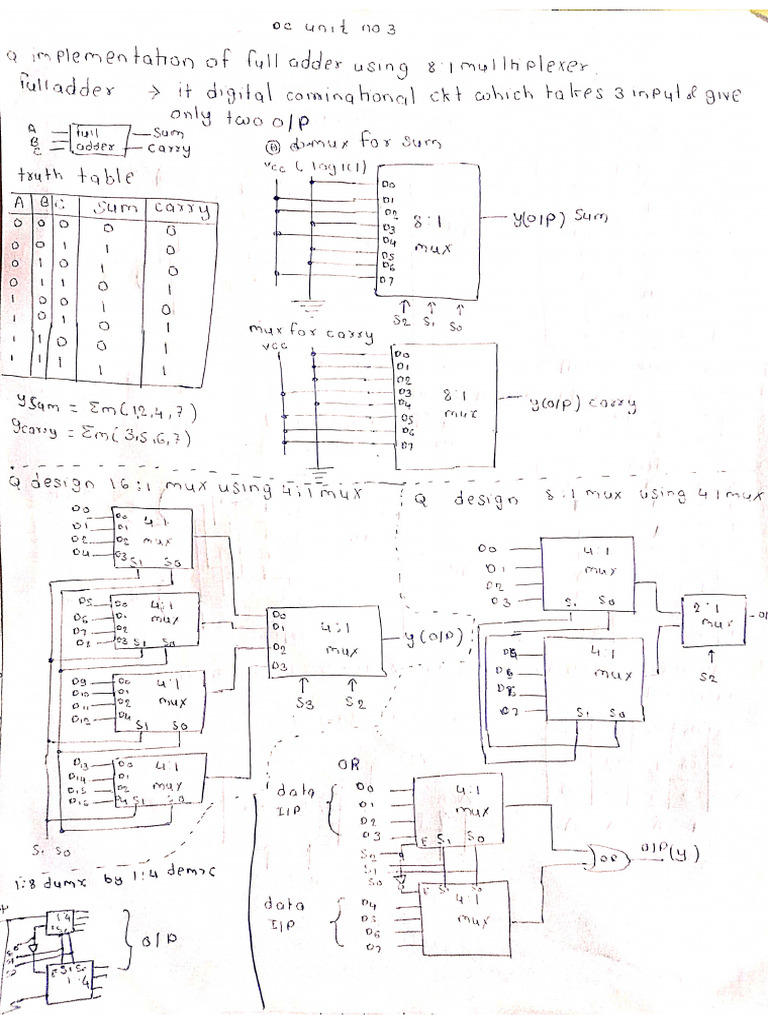 DC unit no 3
Q implementation of full adder using 8:1 mulltiplexer.
fulladder → it digital cominational ckt which takes 3 input & give
only two O/P
A
B
C
full
adder
Sum
carry
truth table
A B C Sum carry
0 0 0 0 0
0 0 1 1 0
0 1 0 1 0
0 1 1 0 1
1 0 0 1 0
1 0 1 0 1
1 1 0 0 1
1 1 1 1 1
ysum = Σm(1,2,4,7)
ycarry = Σm(3,5,6,7)
mux for sum
Vcc (logic1)
D0
D1
D2
D3
D4
D5
D6
D7
8:1
mux
y(O/P) sum
S2 S1 S0
mux for carry
Vcc
D0
D1
D2
D3
D4
D5
D6
D7
8:1
mux
y(O/P) carry
Q design 16:1 mux using 4:1 mux
D0
D1
D2
D4
D0
D1
D2
D3
4:1
mux
S1 S0
D5
D6
D7
D8
D0
D1
D2
D3
4:1
mux
S1 S0
D9
D10
D11
D12
D0
D1
D2
D4
4:1
mux
S1 S0
D13
D14
D15
D16
D0
D1
D4
4:1
mux
S1 S0
S1 S0
D0
D1
D2
D3
4:1
mux
y(O/P)
S3 S2
Q design 8:1 mux using 41 mux
D0
D1
D2
D3
4:1
mux
S1 S0
D7
4:1
mux
S1 S0
2:1
mux
S2
OR
data
I/P
D0
D1
D2
D3
4:1
mux
E S1 S0
S2
S1
S0
data
I/P
D4
D5
D6
D7
E S1 S0
4:1
mux
OR
O/P(y)
1:8 dumx by 1:4 demx
1:4
E S1 S0
1:4
O/P